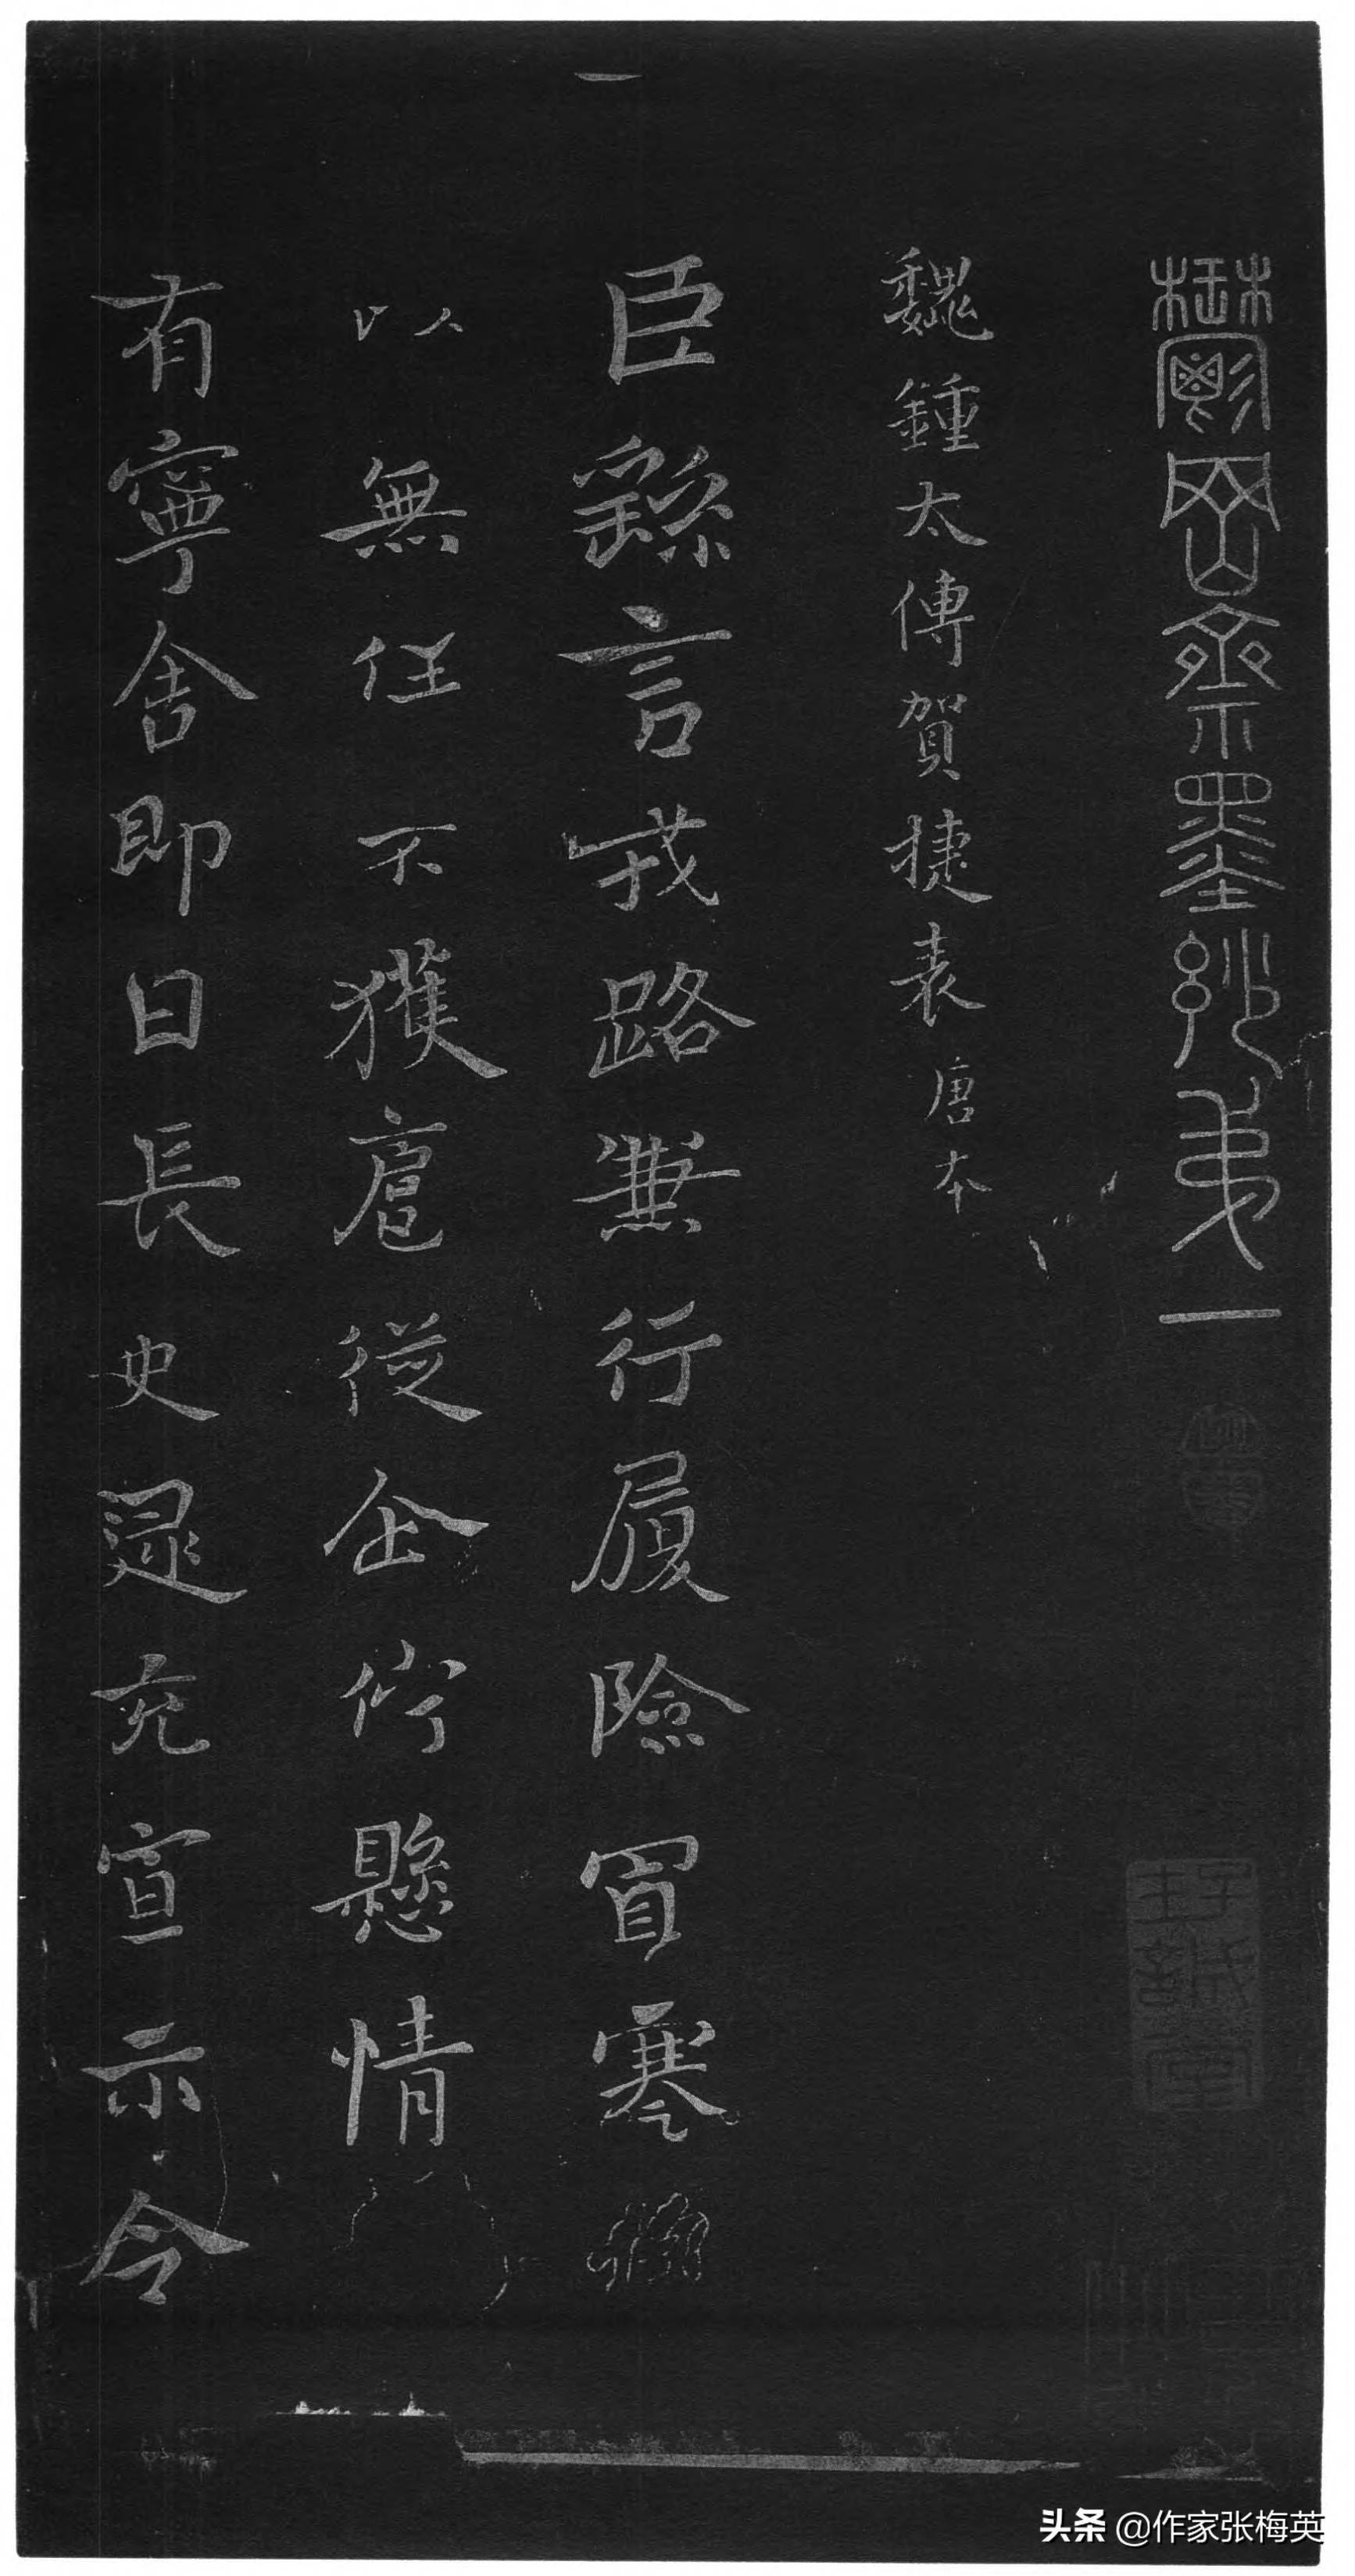 鬱岡齋墨妙弟一
魏鍾太傅賀捷表 唐本
臣繇言戎路兼行履險冒寒臣
以無任不獲扈從企佇懸情
有寧舍即日長史逯充宣示令
一
头条 @作家张梅英